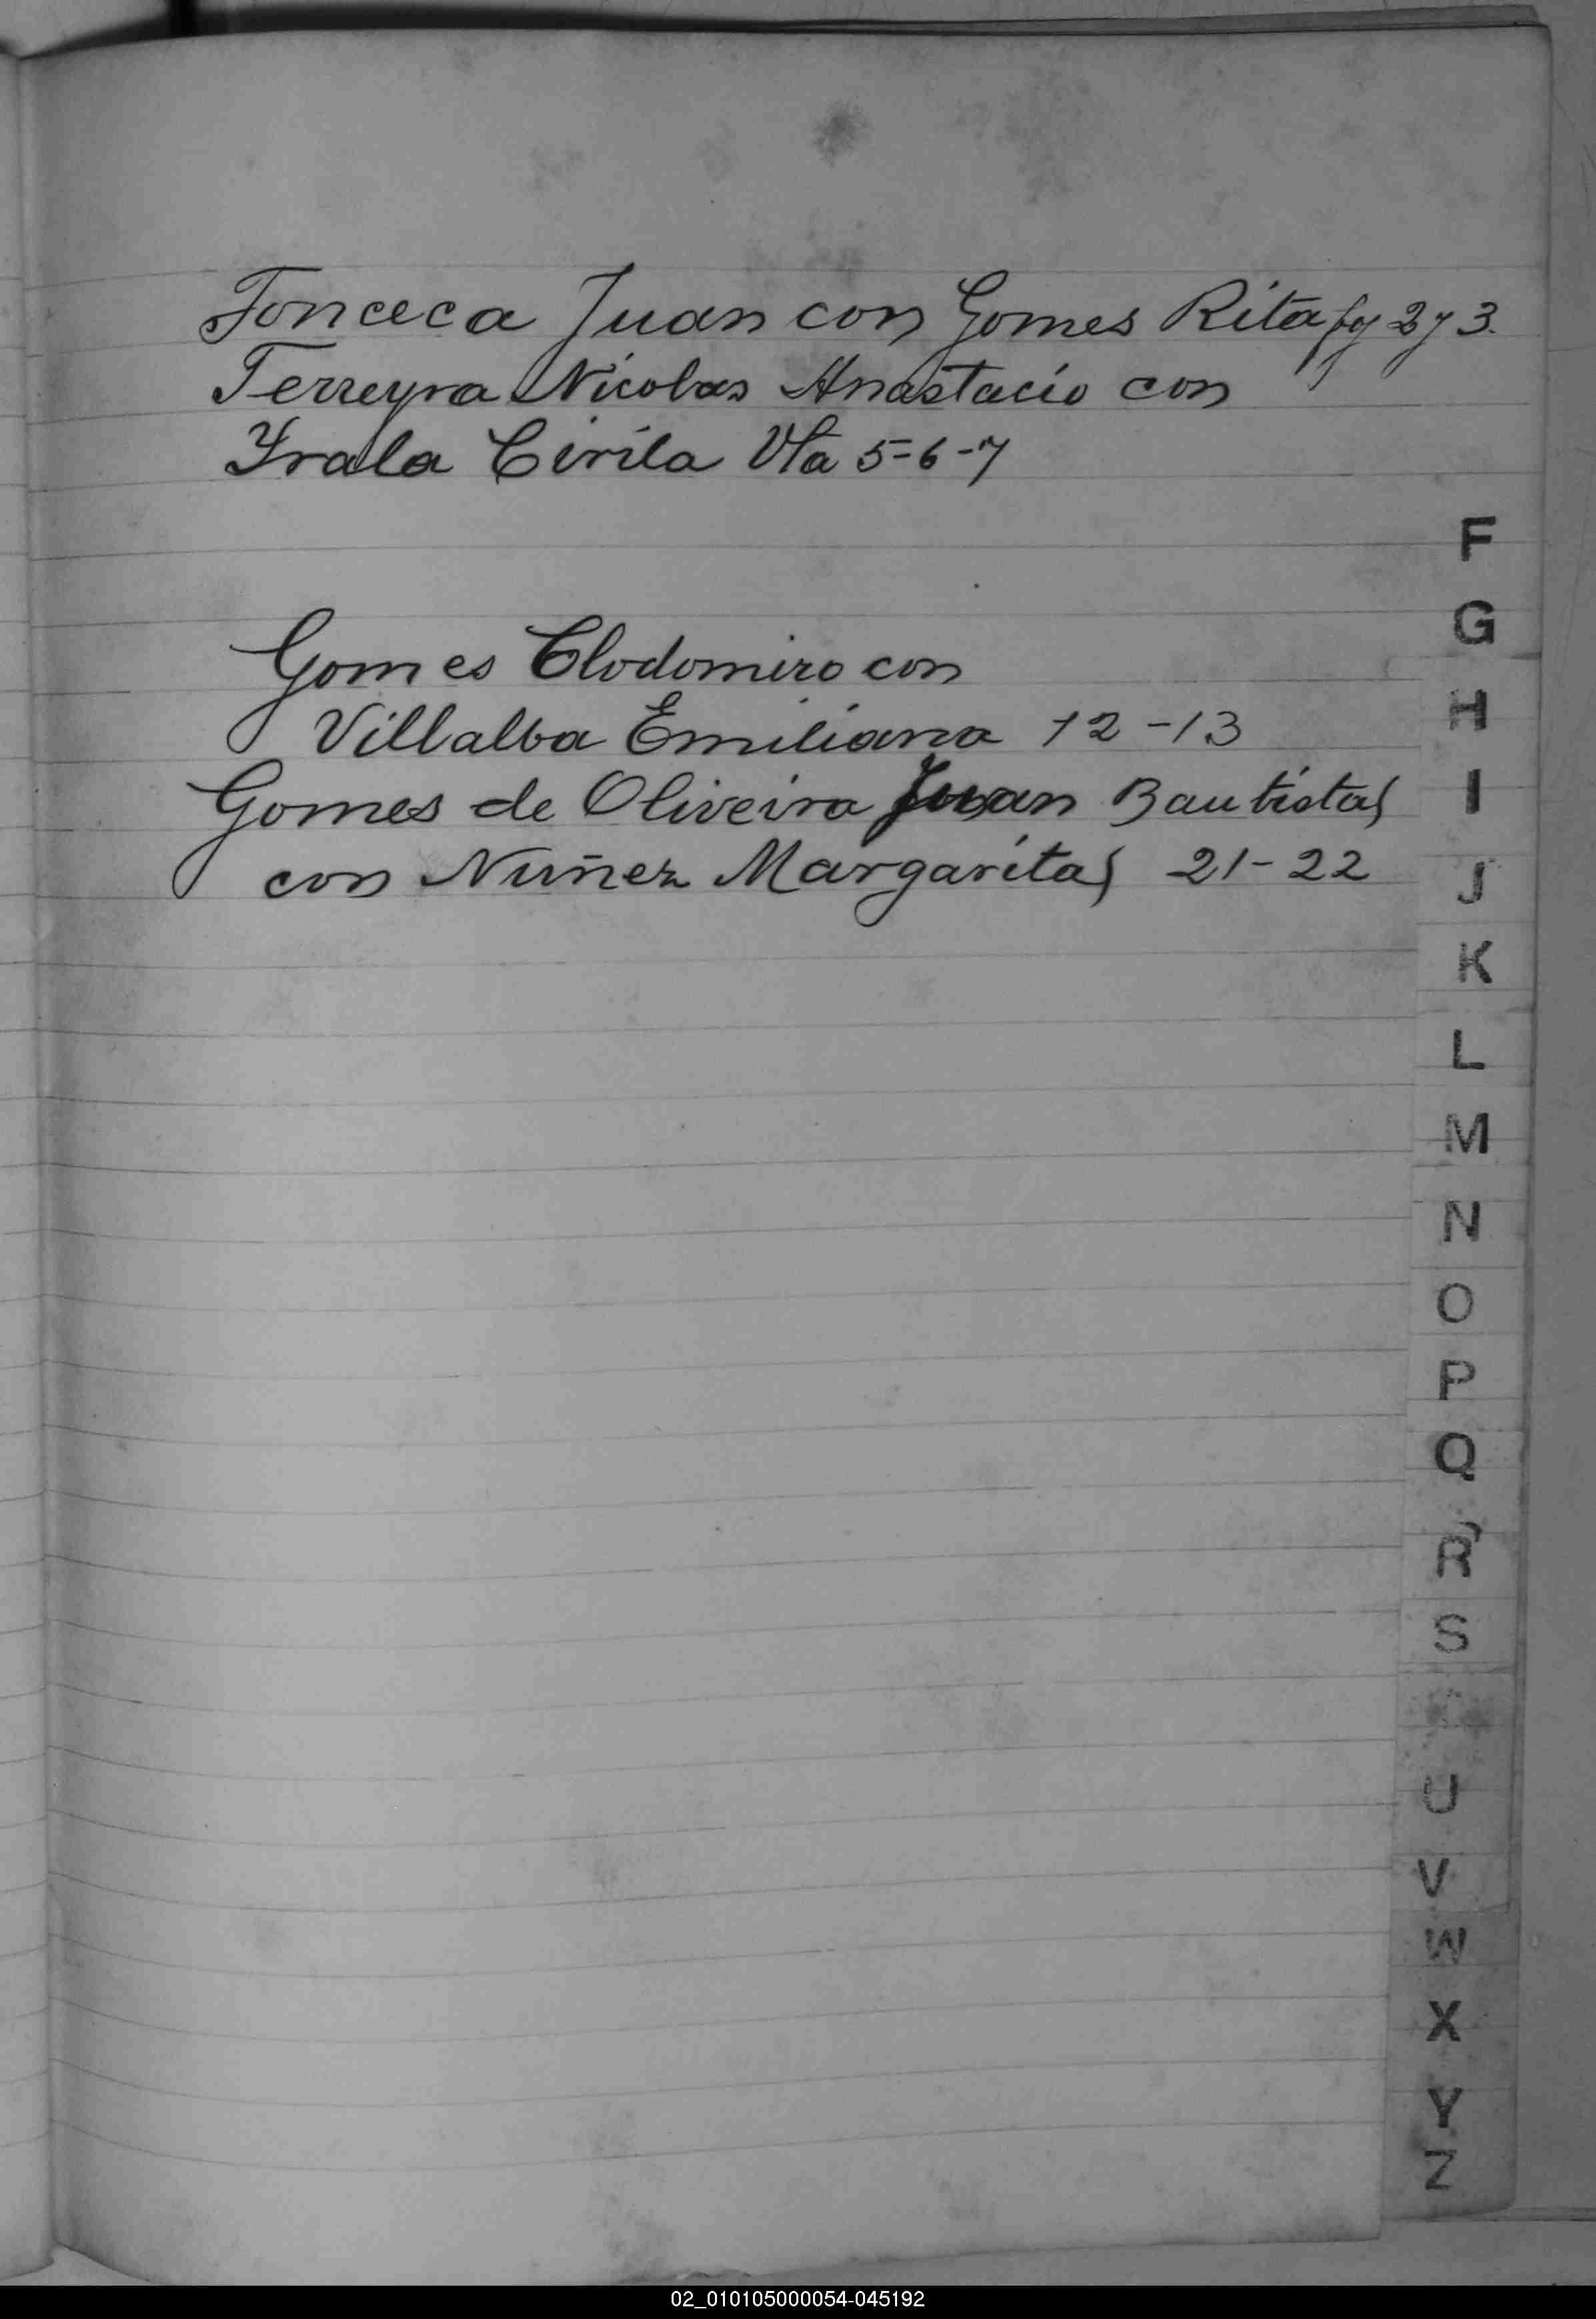 Fonceca Juan con Gomes Rita fg 2 y 3.
Ferreyra Nicolas Anastacio con
Yrala Cirila Vta 5=6-7
Gomes Clodomiro con
Villalba Emiliana 12-13
Gomes de Oliveira Juan Bautista
con Nuñez Margarita 21-22
F
G
H
I
J
K
L
M
N
O
P
Q
R
S
U
V
W
X
Y
Z
02_010105000054-045192